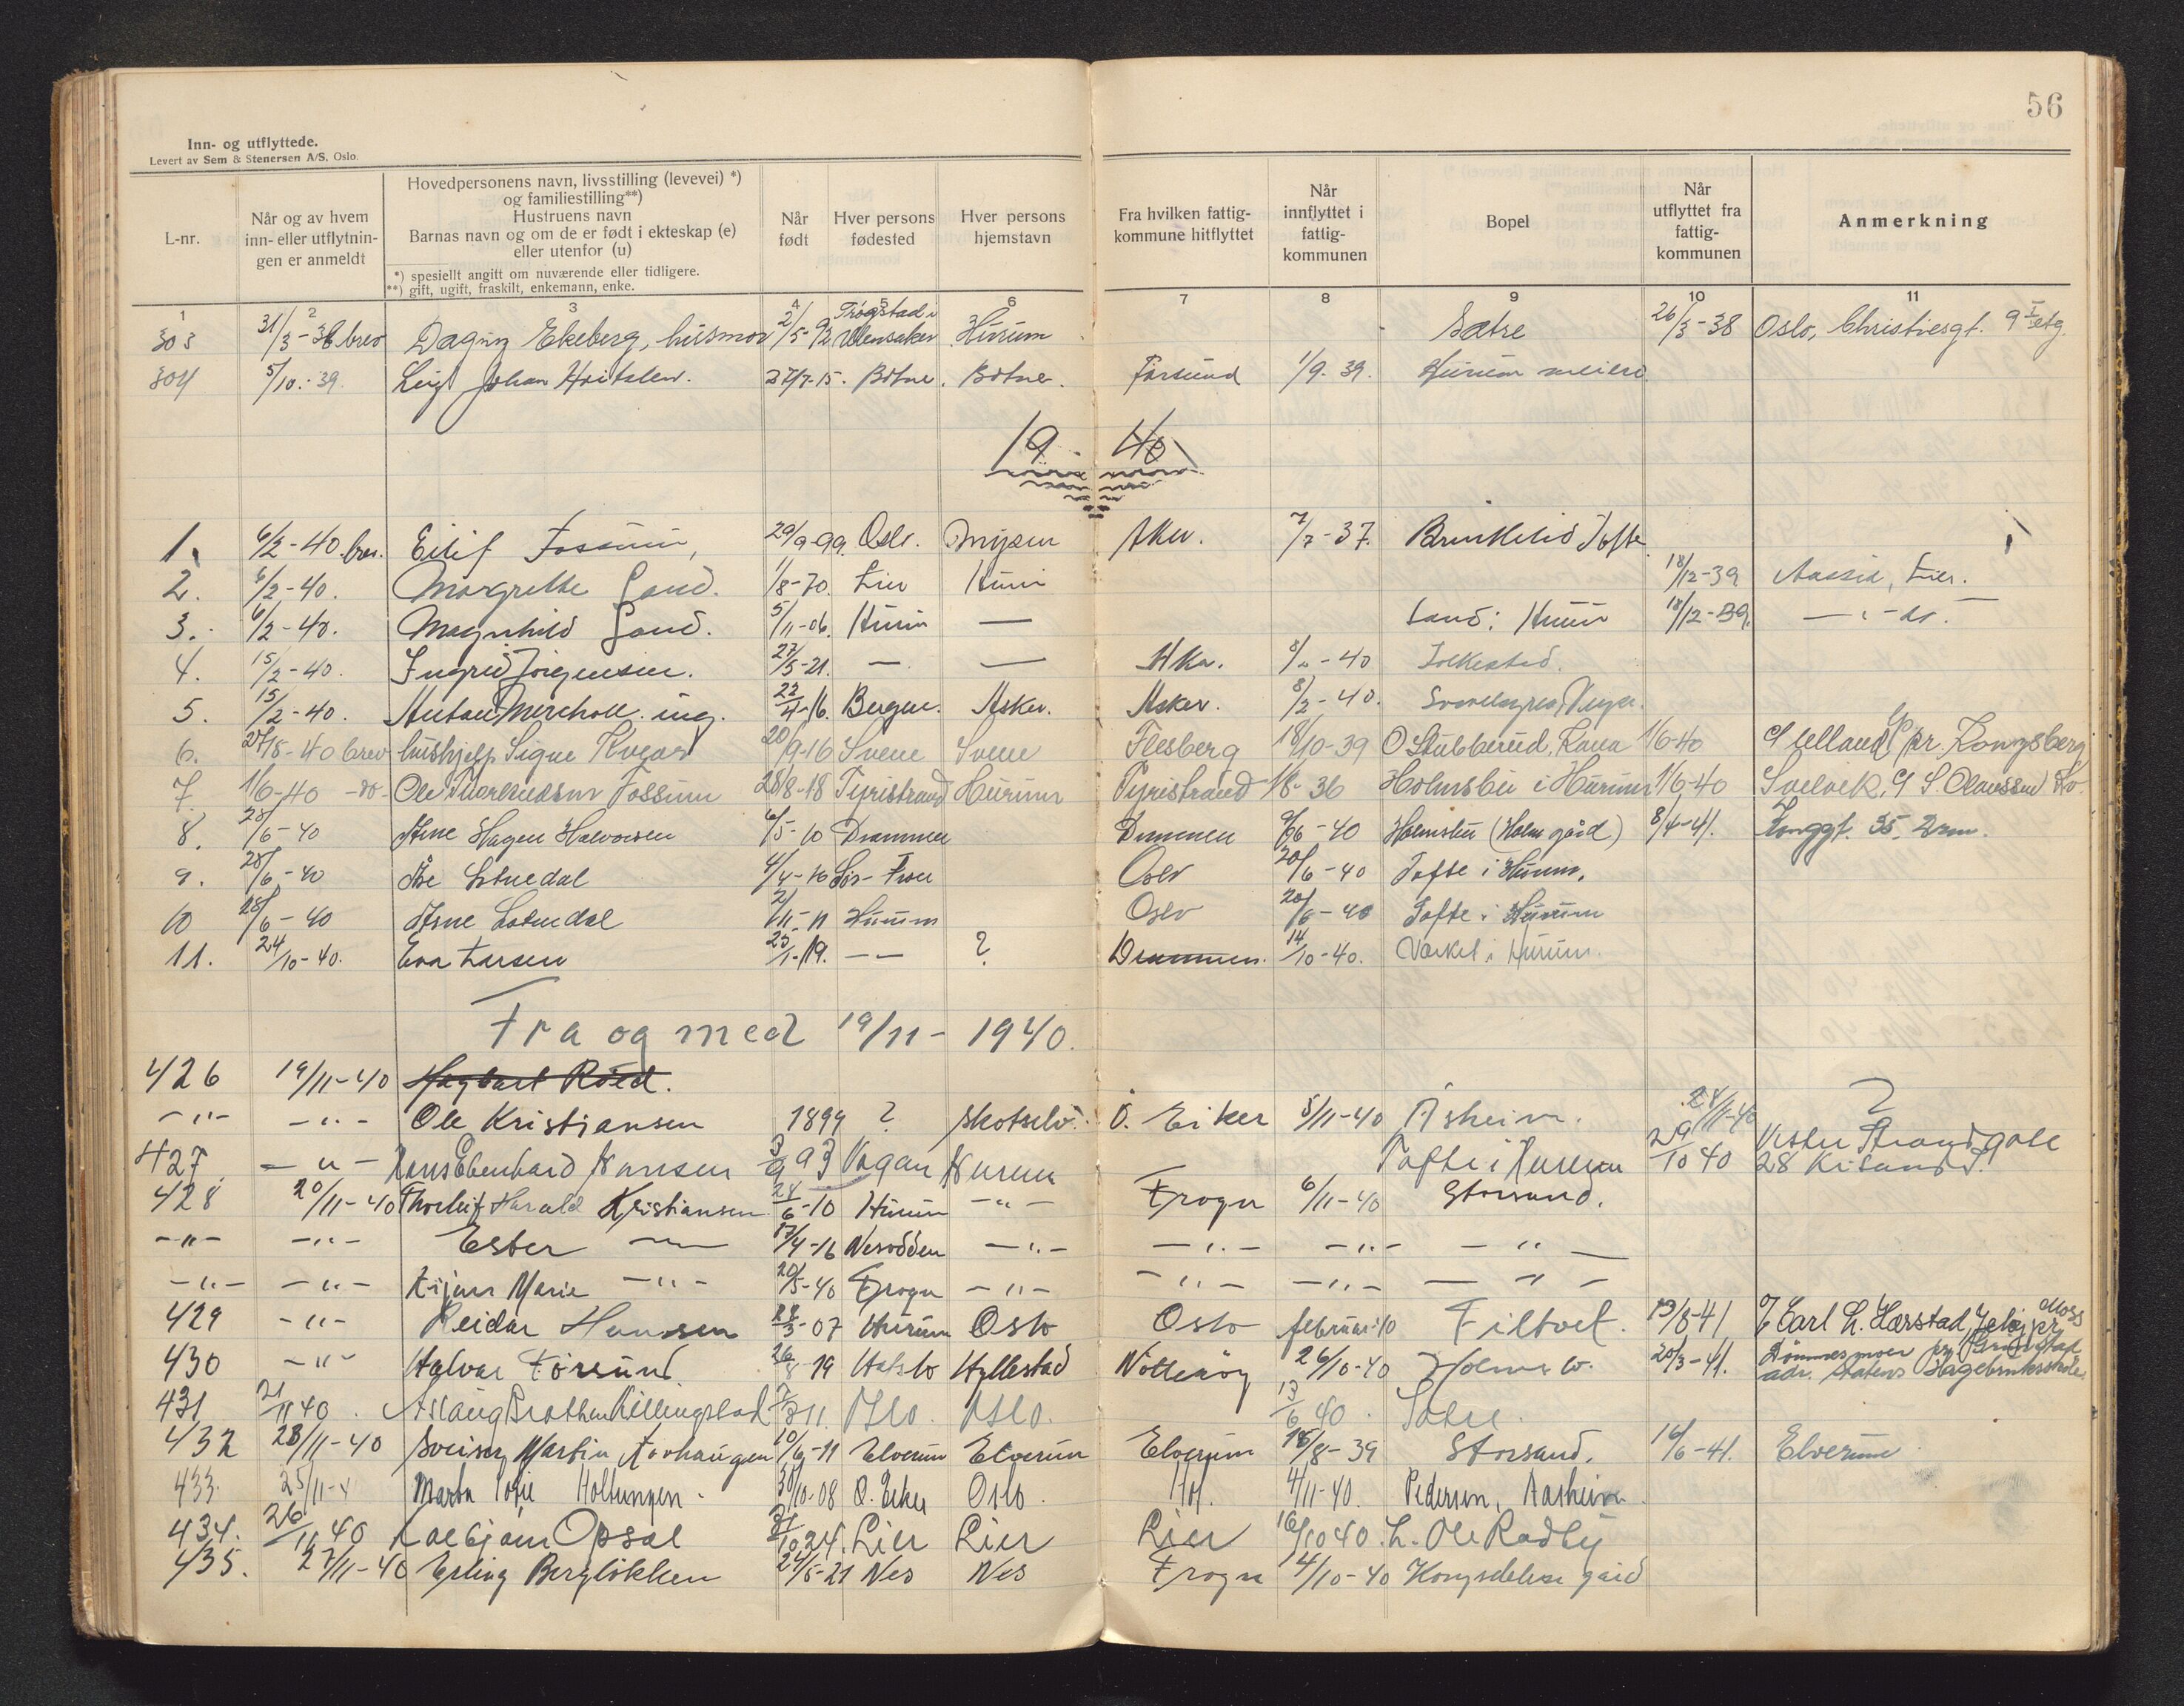 56
Inn- og utflyttede.
Levert av Sem & Stenersen A/S, Oslo.
L-nr.
Når og av hvem inn- eller utflytnin- gen er anmeldt
Hovedpersonens navn, livsstilling (levevei) *)
og familiestilling**)
Hustruens navn
Barnas navn og om de er født i ekteskap (e)
eller utenfor (u)
*) spesiellt angitt om nuværende eller tidligere.
**) gift, ugift, fraskilt, enkemann, enke.
Når født
Hver persons fødested
Hver persons hjemstavn
Fra hvilken fattig- kommune hitflyttet
Når innflyttet i fattig- kommunen
Bopel
Når utflyttet fra fattig- kommunen
Anmerkning
1 2 3 4 5 6 7 8 9 10 11
303 31/3-38 brev Dagny Ekeberg, husmor 2/5-92 Trøgstad i Hurum Sætre 26/3-38 Oslo, Christiesgt. 9 I etg.
304 5/10.-39. Johan 27/7-15. Botne. Botne. 1/9.39. Hurum meieri
19 - 40
1. 6/2-40. brev. Eilif Fossum, 29/9-99. Oslo. Mysen Aker. 7/7-37. Tofte
2. 6/2-40. Margrethe Sand. 1/8-70. Lier Hurum 18/12-39 Lier.
3. 6/2-40. Magnhild Sand. 5/11-06. Hurum — Sand i Hurum 18/12-39. —"— ds.
4. 15/2-40. Ingrid Jørgensen. 27/5-21. — — Aker. 8/2-40
5. 15/2-40. ing. 22/4-16. Bergen. Asker. Asker. 8/2-40.
6. 27/8-40 brev hushjelp Signe 20/9-16 Svene Svene Flesberg 18/10-39 O Stubberud, Rana 1/6-40 pr. Kongsberg
7. 1/6-40 -do- Ole Fossum 28/8-18 Tyristrand Hurum Tyristrand 1/8-36 Holmsbu i Hurum 1/6-40 Svelvik,
8. 28/6-40 Arne Hagen Halvorsen 6/5-10 Drammen Drammen -40 Holmsbu (Holm gård) 8/4-41. Konggt. 35, Drm.
9. 28/6-40 4/4-10 Oslo 20/6-40 Tofte i Hurum.
10 28/6-40 Arne 2/11-11 Hurum Oslo 20/6-40 Tofte i Hurum
11. 24/10-40. Eva Larsen 25/1-19. — — ? Drammen. 14/10-40. Verket i Hurum.
Fra og med 19/11-1940.
426 19/11-40 Hagbart Røed.
-"- -"- Ole Kristiansen 1899 ? Skotselv. Ø. Eiker 5/11-40 Åsheim. 28/11-40 ?
427. -"- Hans Ebenhard Hansen 3/9 93 Vågan Hurum Tofte i Hurum 29/10 40 Vestre Strandgate 28 Krisand S.
428 20/11-40 Thorleif Harald Kristiansen 24/6-10 Hurum -"- Frogn 6/11-40 Storsand.
-"- -"- Ester — 17/4-16 Nesodden -"- -"- -"- -"-
-"- -"- Marie -"- 20/5-40 Frogn -"- -"- -"- -"-
429 -"- Reidar Hansen 22/3-07 Hurum Oslo Oslo februar 40 Filtvet. 13/8-41 c/o Carl L. Harstad, Jeløy pr Moss
430 -"- Halvar Førsund. 26/8-19 Hafslo Hyllestad Nøtterøy 26/10-40 20/3-41. pr. Grimstad adr. Statens Hagebruksskole
431 21/11 40. Aslaug Killingstad 7/3 11. Oslo. Oslo. 13/6 40. Sætre.
432 23/11-40 Martin 10/6-11 Elverum Elverum Elverum 15/8-39 Storsand. 16/6-41. Elverum
433. 25/11-4 Marta Sofie Holtungen. 30/10-08 Ø. Eiker Oslo. Hof. 4/11-40. Pedersen, Aasheim.
434. 26/11 40 Opsal 31/10 24. Lier Lier Lier 16/10 40. L. Ole Rødby
435. 27/11-40 Erling Bergløkken 24/5-21 Nes Nes Frogn 14/10-40 Kongsdelene gård